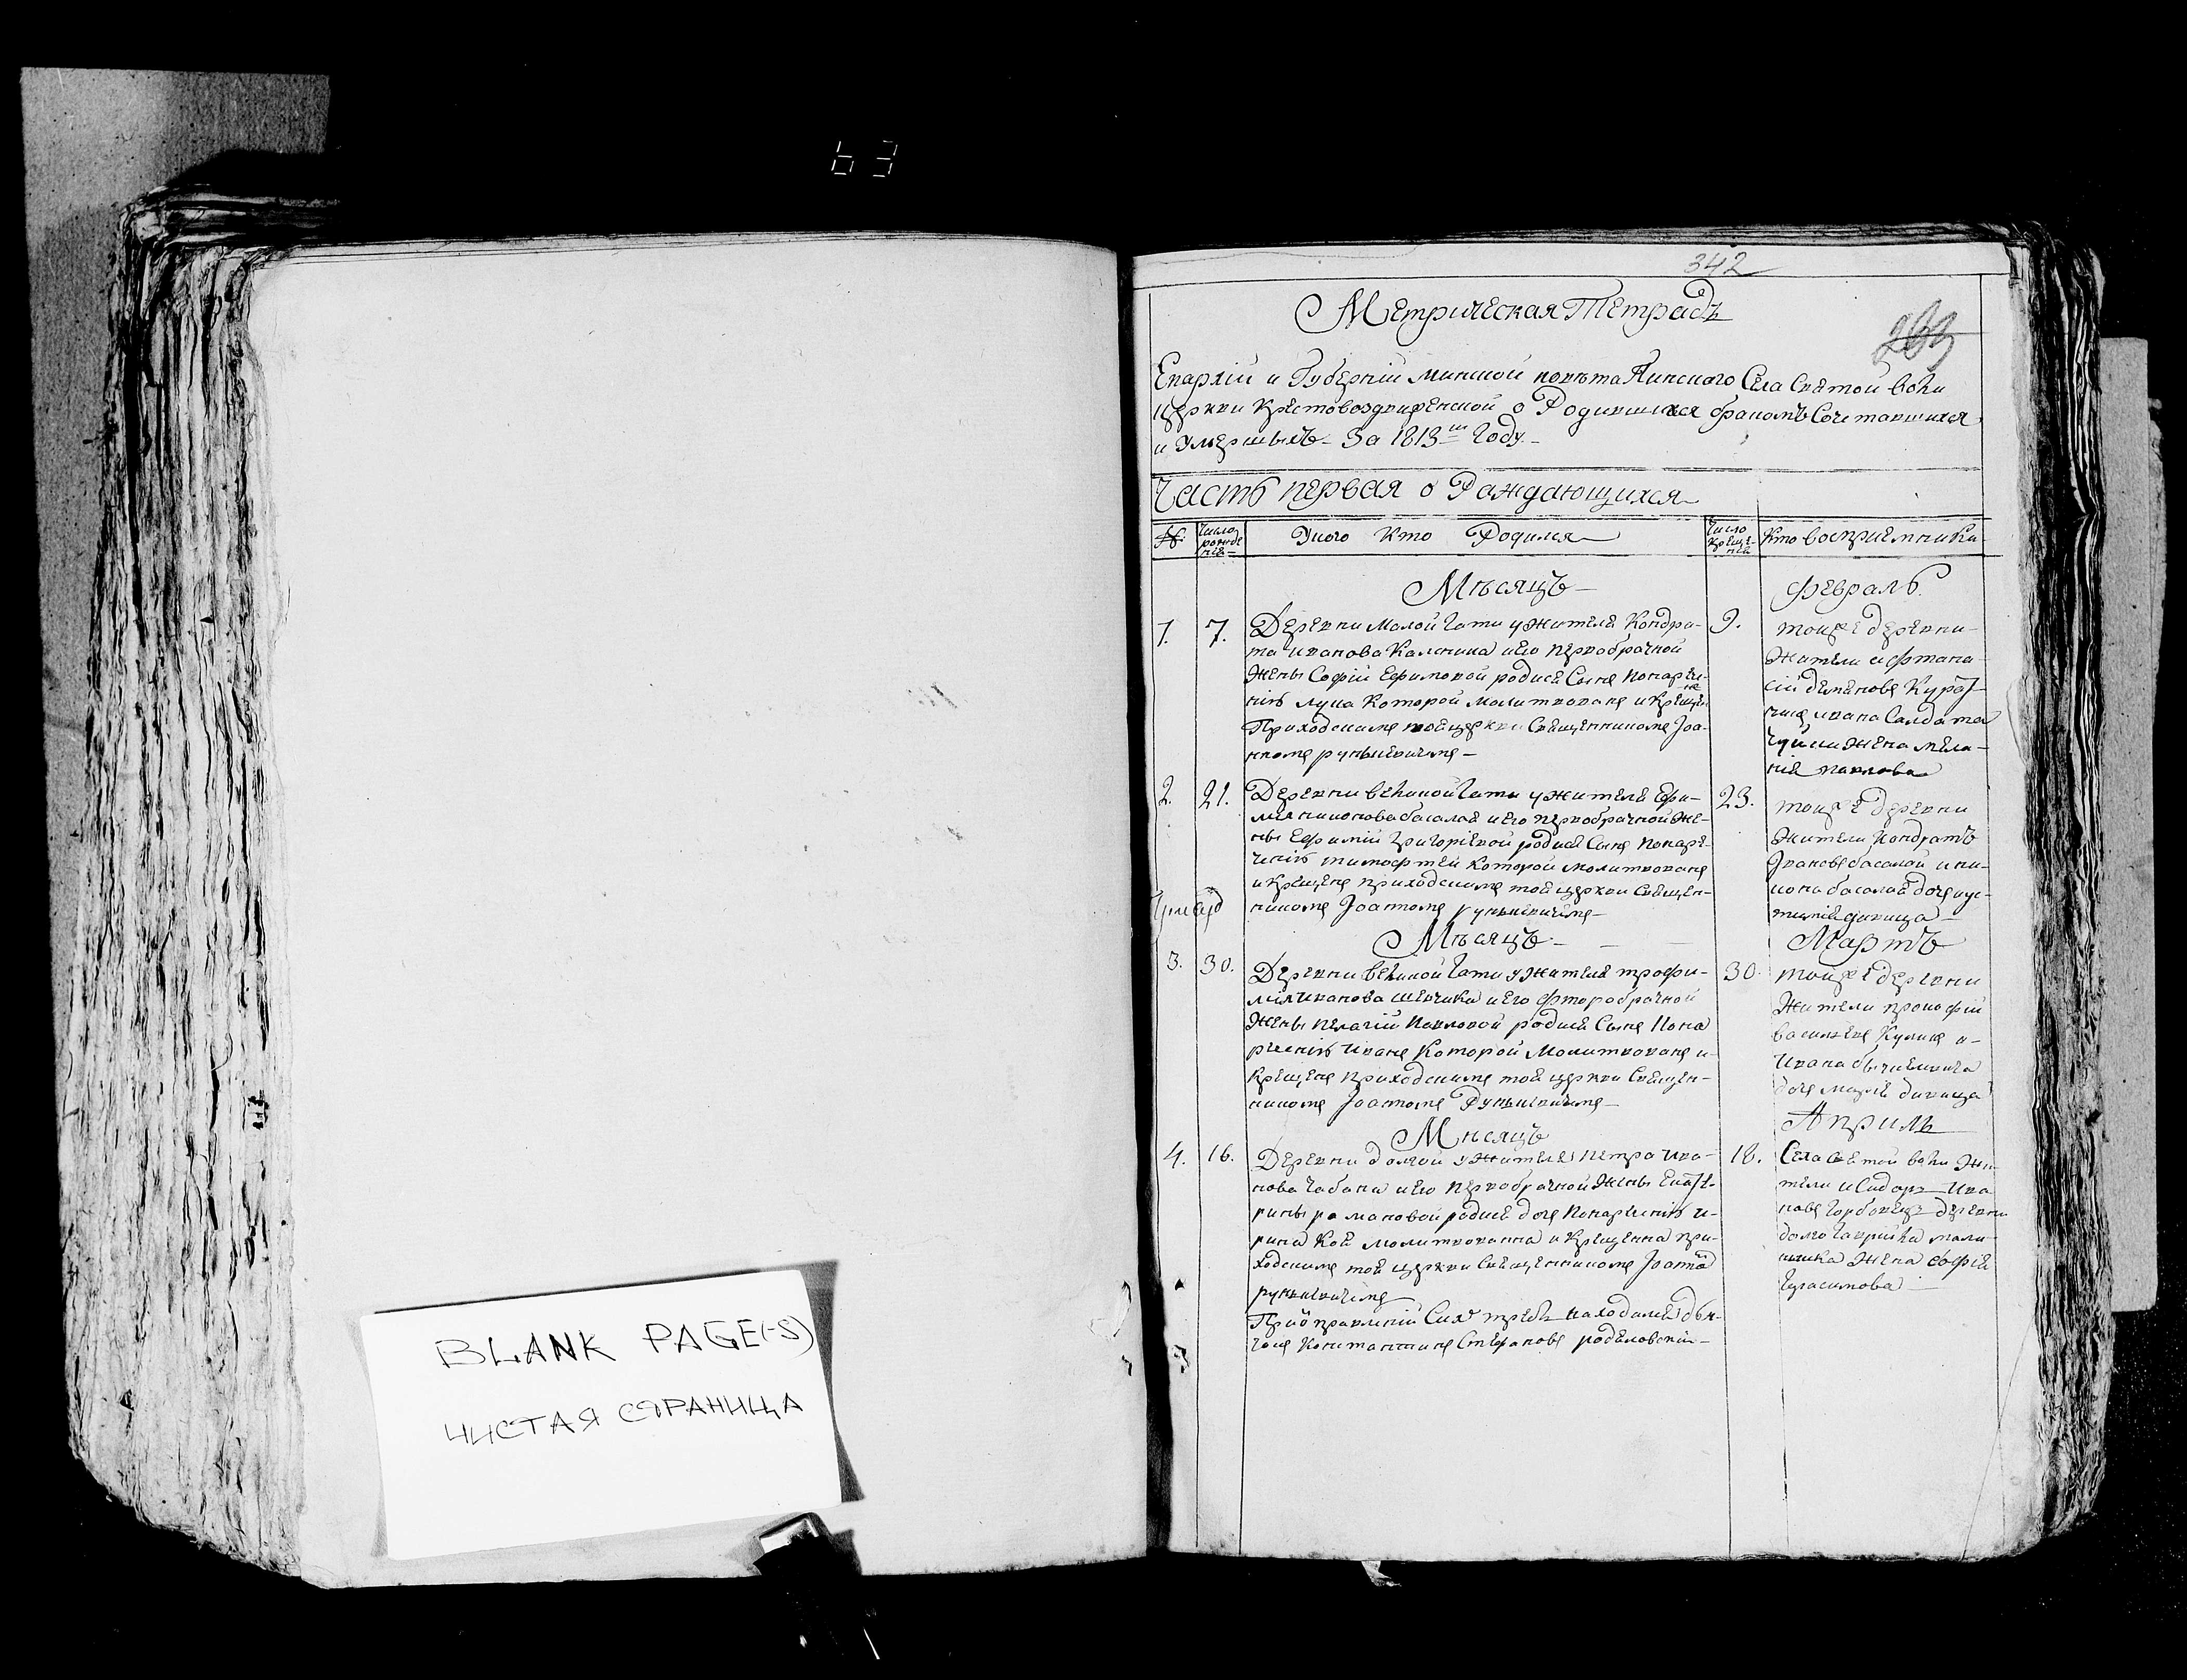 63
BLANK PAGE(-S)
ЧИСТАЯ СТРАНИЦА
342
Метрическая Тетрадь
Епархіи и Губерніи минской повѣта Пинского Села Святой воли
церкви Крестовоздвиженской о Родившихся бракомъ Сочетавшихся
и Умершыхъ За 1813 Году
Часть первая о Раждающихся
№ Число рождения У кого кто Родился Число крещения Кто восприемники
Мѣсяцъ Февраль
1. 7. Деревни Малой Гати у Жителя Кондра-
та иванова и его первобрачной
Жены Софіи Ефимовой родися Сынъ Понарѣче-
нію лука Которой молитвованъ и Крещенъ
Приходскимъ той церкви Священникомъ Іоа-
нномъ рункевичемъ
9. тойже деревни
Жители
Ивана Салдата
Жена мела-
нія павлова
2. 21. Деревни великой Гати у жителя Ефи-
ма никонова басалая и его первобрачной Же-
ны Ефиміи Григоріевой родися Сынъ Понарѣ-
ченію тимофтей Которой молитвованъ
и Крещенъ приходскимъ той церкви Священ-
никомъ Іоанномъ рункевичемъ
23. тойже деревни
Жители Кондратъ
Івановъ басалай и ни-
кона басалая дочь юс-
тинія дѣвица
Мѣсяцъ Мартъ
3. 30. Деревни великой Гати у Жителя трофи-
ма Иванова шевчика и его фторобрачной
Жены пелагіи Павловой родися Сынъ Пона
рѣченію Иванъ Которой Молитвованъ и
Крещенъ приходскимъ той церкви Священ-
никомъ Іоанномъ Рункевичемъ
30. тойже деревни
Жители прокофій
васильевъ Куликъ и
Ивана
дочь марія дѣвица
Мѣсяцъ Апріль
4. 16. Деревни долгой у Жителя Петра Ива-
нова Чабана и его первобрачной Жены Екате-
рины романовой родися дочь Понарѣченію и-
рина Коя молитвованна и Крещенна при-
ходскимъ той церкви Священникомъ Іоанномъ
рункевичемъ
При отправленіи Сихъ требъ находился дья-
чокъ Константинъ Стефановъ
18. Села Святой воли Жи-
тели Сидоръ Ива
новъ Горбачъ деревни
долгой
Жена Софія
Герасимова